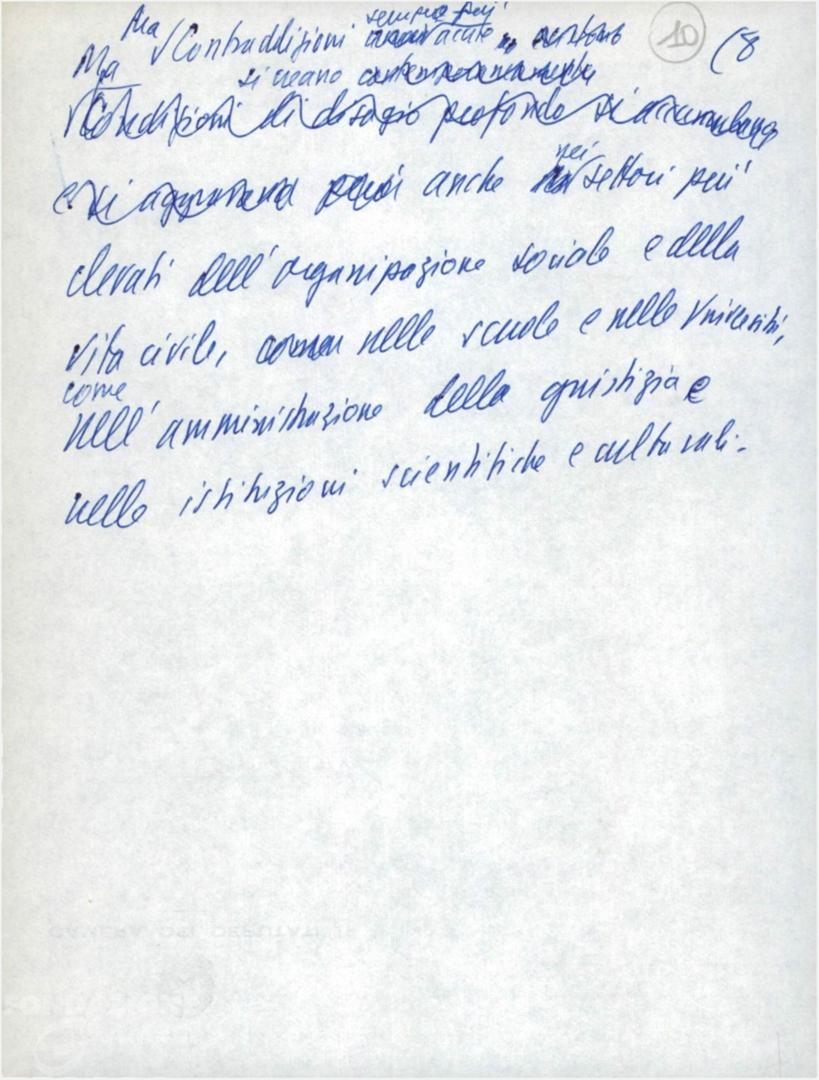 sempre più
Ma Contraddizioni acute esistono 10 (8
Ma si creano contemporaneamente
Condizioni di disagio profondo si accumulano
e si aggravano anche nei settori più
elevati dell'organizzazione sociale e della
vita civile, nelle scuole e nelle Università,
come
nell'amministrazione della giustizia e
nelle istituzioni scientifiche e culturali.